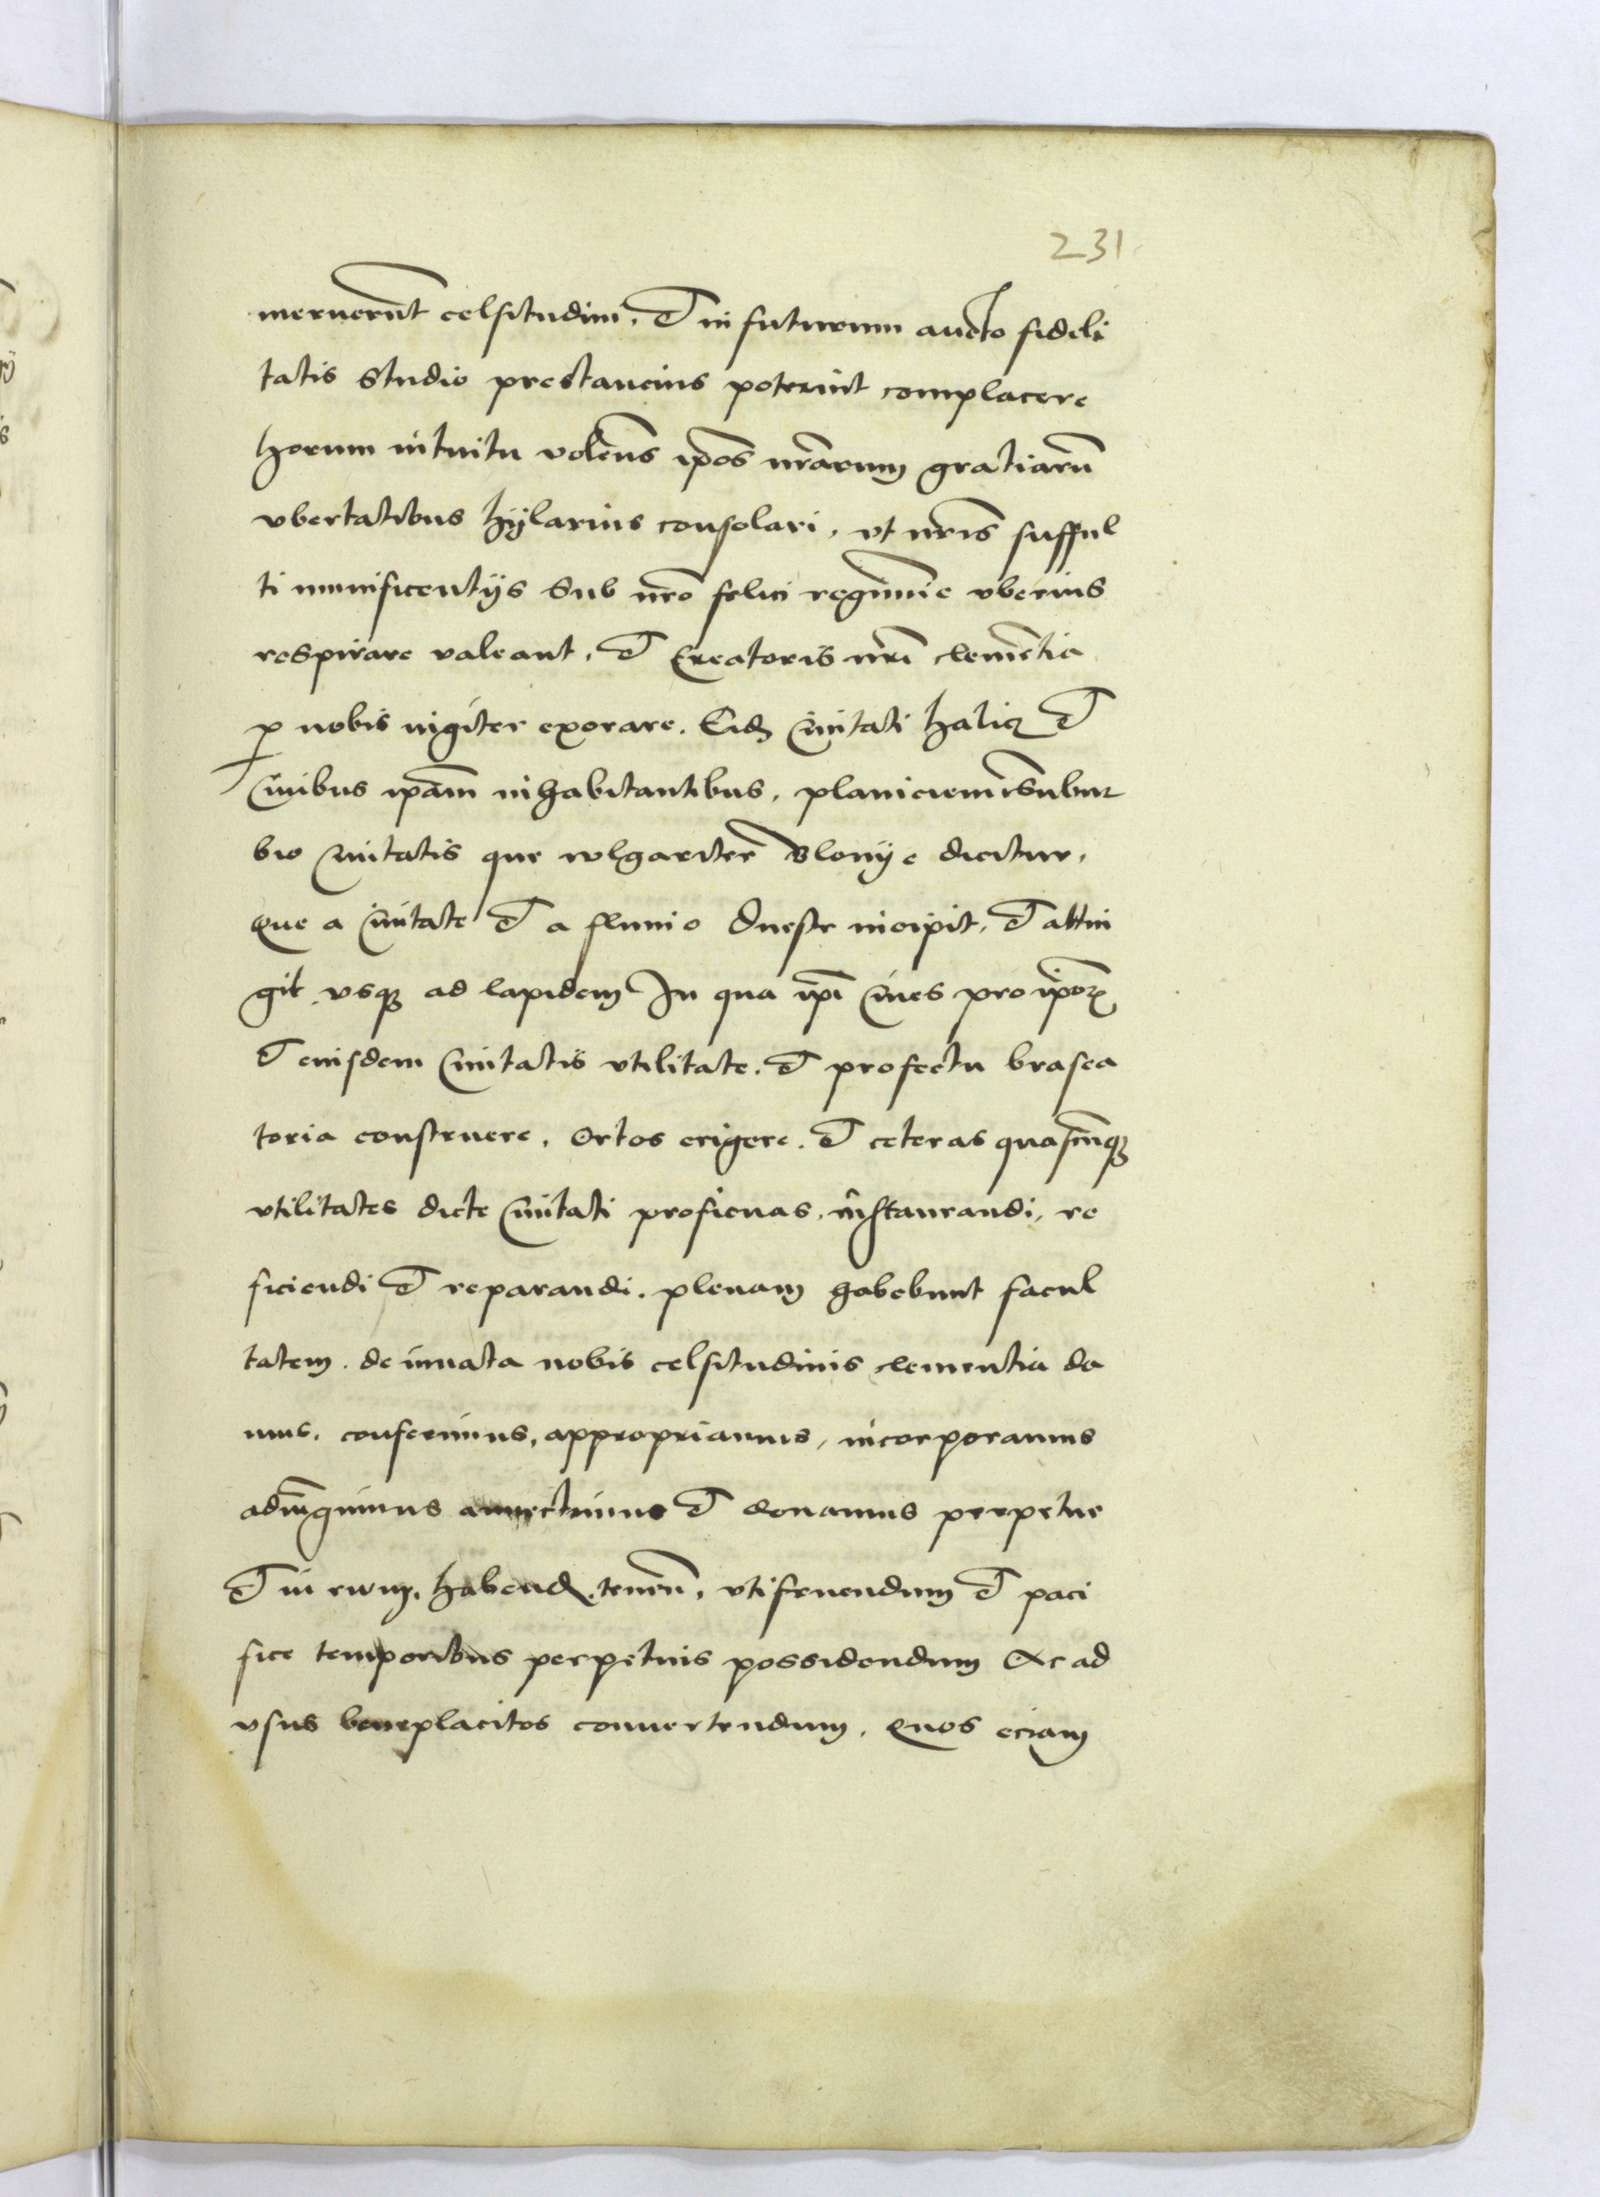 231
meruerūt celsitudini, et in futurum aucto fideli
tatis studio prestancius poterint complacere
horum intuitu volens̄ ip̄os nr̄arum gratiarū
vbertatibus hÿlarius consolari, vt nr̄is sufful
ti munificentÿs sub nr̄o felici regimīe vberius
respirare valeant, et Creatoris nr̄i clemētia
ꝑ nobis iugiter exorare. Eidē Ciuitati halicz et
Ciuibus ip̄am inhabitantibus, planiciem in subur
bio Ciuitatis que wlgariter Blonÿe dicitur,
Que a Ciuitate et a fluuio Dnestr incipit, et attin
git vsqꝫ ad lapidem In qua ip̄i Ciues pro ip̄oꝝ
et eiusdem Ciuitatis vtilitate, et profectu brasea
toria construere, ortos erigere, et ceteras quascūqꝫ
vtilitates dicte Ciuitati proficuas, instaurandi, re
ficiendi et reparandi, plenam habebunt facul
tatem. de innata nobis celsitudinis clementia da
mus, conferimus, appropriamus, incorporamus
adiūgimus annectimus et donamus perpetue
et in euum, habend. tenen̄, vtifruendum et paci
fice temporibus perpetuis possidendum Ac ad
vsus beneplacitos conuertendum, Quos eciam